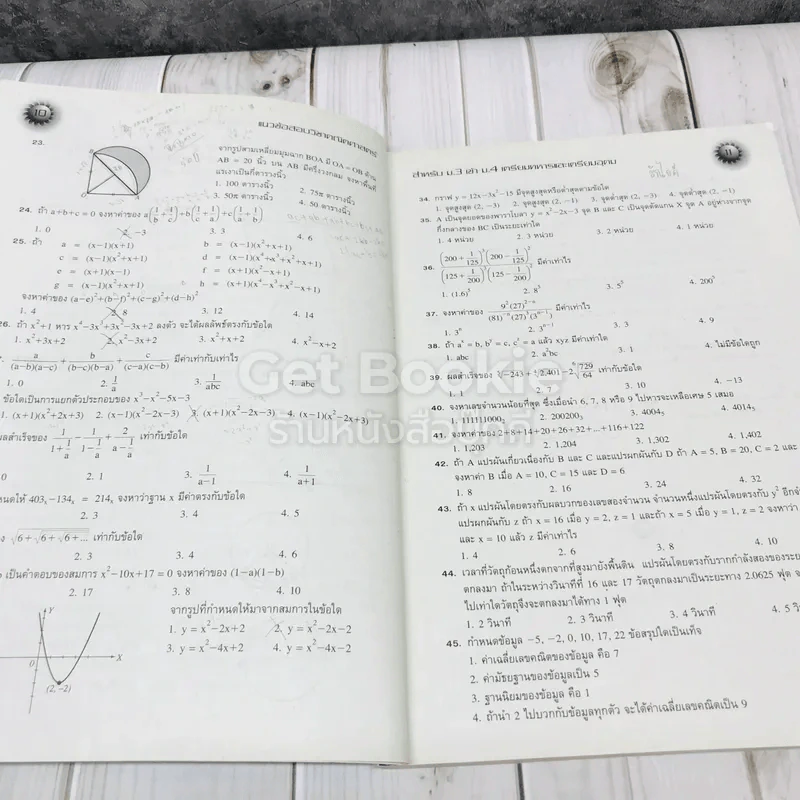 10
แนวข้อสอบวิชาคณิตศาสตร์
23.
จากรูปสามเหลี่ยมมุมฉาก BOA มี OA = OB ด้าน
AB = 20 นิ้ว บน AB มีครึ่งวงกลม จงหาพื้นที่
แรเงาเป็นกี่ตารางนิ้ว
1. 100 ตารางนิ้ว 2. 75π ตารางนิ้ว
3. 50π ตารางนิ้ว 4. 50 ตารางนิ้ว
B
O
A
24. ถ้า a+b+c = 0 จงหาค่าของ a(1/b + 1/c)+b(1/c + 1/a)+c(1/a + 1/b)
1. 0 2. −3 3. 3 4. 6
25. ถ้า a = (x−1)(x+1) b = (x−1)(x²+x+1)
c = (x−1)(x²+x+1) d = (x−1)(x⁴+x³+x²+x+1)
e = (x+1)(x−1) f = (x+1)(x²−x+1)
g = (x+1)(x²+x+1) h = (x+1)(x⁴−x³+x²−x+1)
จงหาค่าของ (a−e)²+(b−f)²+(c−g)²+(d−h)²
1. 4 2. 8 3. 12 4. 14
26. ถ้า x²+1 หาร x⁴−3x³+3x²−3x+2 ลงตัว จะได้ผลลัพธ์ตรงกับข้อใด
1. x²+3x+2 2. x²−3x+2 3. x²+x+2 4. x²−x+2
a/((a−b)(a−c)) + b/((b−c)(b−a)) + c/((c−a)(c−b)) มีค่าเท่ากับเท่าไร
1. 0 2. 1/a 3. 1/abc 4. abc
ข้อใดเป็นการแยกตัวประกอบของ x³−x²−5x−3
1. (x+1)(x²+2x+3) 2. (x−1)(x²−2x−3) 3. (x+1)(x²−2x−3) 4. (x−1)(x²−2x+3)
ผลสำเร็จของ เท่ากับข้อใด
0 2. 1 3. 1/(a−1) 4. 1/(a+1)
403ₓ−134ₓ = 214ₓ จงหาว่าฐาน x มีค่าตรงกับข้อใด
2. 3 3. 4 4. 5
√6+√6+√6+... เท่ากับข้อใด
2. 3 3. 4 4. 6
เป็นคำตอบของสมการ x²−10x+17 = 0 จงหาค่าของ (1−a)(1−b)
2. 17 3. 8 4. 10
จากรูปที่กำหนดให้มาจากสมการในข้อใด
1. y = x²−2x+2 2. y = x²−2x−2
3. y = x²−4x+2 4. y = x²−4x−2
Y
0
X
(2,−2)
สำหรับ ม.3 เข้า ม.4 เตรียมทหารและเตรียมอุดม
11
34. กราฟ y = 12x−3x²−15 มีจุดสูงสุดหรือต่ำสุดตามข้อใด
1. จุดสูงสุด (2, −3) 2. จุดสูงสุด (2, −1) 3. จุดต่ำสุด (2, −3) 4. จุดต่ำสุด (2, −1)
35. A เป็นจุดยอดของพาราโบลา y = x²−2x−3 จุด B และ C เป็นจุดตัดแกน X จุด A อยู่ห่างจากจุด
กึ่งกลางของ BC เป็นระยะเท่าใด
1. 4 หน่วย 2. 3 หน่วย 3. 2 หน่วย 4. 1 หน่วย
36. มีค่าเท่าไร
1. (1.6)⁵ 2. 8⁵ 3. 5⁵ 4. 200⁵
37. จงหาค่าของ มีค่าเท่าไร
1. 3ⁿ 2. 3ⁿ⁻¹ 3. 3 4. 9
38. ถ้า aˣ = b, bʸ = c, cᶻ = a แล้ว xyz มีค่าเท่าไร
1. abc 2. a²bc 3. 1 4. ไม่มีข้อใดถูก
39. ผลสำเร็จของ เท่ากับเท่าไร
3. 10 4. −13
40. จงหาเลขจำนวนน้อยที่สุด ซึ่งเมื่อนำ 6, 7, 8 หรือ 9 ไปหารจะเหลือเศษ 5 เสมอ
1. 111111000₂ 2. 200200₃ 3. 4004₅ 4. 4014₅
41. จงหาค่าของ 2+8+14+20+26+32+...+116+122
1. 1,203 2. 1,204 3. 1,302 4. 1,402
42. ถ้า A แปรผันเกี่ยวเนื่องกับ B และ C และแปรผกผันกับ D ถ้า A = 5, B = 20, C = 2 และ
จงหาค่า B เมื่อ A = 10, C = 15 และ D = 6
1. 8 2. 16 3. 24 4. 32
43. ถ้า x แปรผันโดยตรงกับผลบวกของเลขสองจำนวน จำนวนหนึ่งแปรผันโดยตรงกับ y²
แปรผกผันกับ z ถ้า x = 16 เมื่อ y = 2, z = 1 และถ้า x = 5 เมื่อ y = 1, z = 2 จงหาว่า
และ x = 10 แล้ว z มีค่าเท่าไร
1. 4 2. 6 3. 8 4. 10
44. เวลาที่วัตถุก้อนหนึ่งตกจากที่สูงมายังพื้นดิน แปรผันโดยตรงกับรากกำลังสองของระยะ
ตกลงมา ถ้าในระหว่างวินาทีที่ 16 และ 17 วัตถุตกลงมาเป็นระยะทาง 2.0625 ฟุต
ไปเท่าใดวัตถุจึงจะตกลงมาได้ทาง 1 ฟุต
1. 2 วินาที 2. 3 วินาที 3. 4 วินาที 4. 5
45. กำหนดข้อมูล −5, −2, 0, 10, 17, 22 ข้อสรุปใดเป็นเท็จ
1. ค่าเฉลี่ยเลขคณิตของข้อมูล คือ 7
2. ค่ามัธยฐานของข้อมูลเป็น 5
3. ฐานนิยมของข้อมูล คือ 1
4. ถ้านำ 2 ไปบวกกับข้อมูลทุกตัว จะได้ค่าเฉลี่ยเลขคณิตเป็น 9
Get Bookie
ร้านหนังสือปู๊กกี้